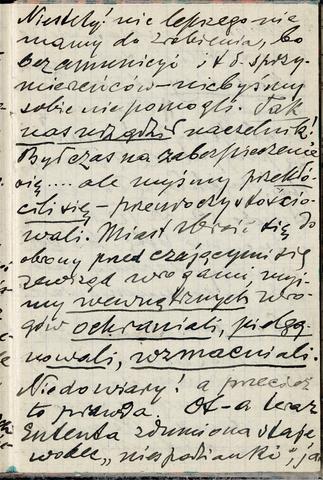 Niestety! nic lepszego nie
mamy do zrobienia, bo
bez amunicyi i t d. sprzy-
mierzeńców – nic byśmy
sobie nie pomogli. Tak
nas urządził naczelnik!
Był czas na zabezpieczenie
się .... ale myśmy przekłó-
cili się –
wali. Miast zbroić się do
obrony przed czającymi się
zewsząd wrogami, myś-
my wewnętrznych wro-
gów ochraniali, pielęg-
nowali, wzmacniali.
Nie do wiary! a przecież
to prawda. Ot – a teraz
Ententa zdumiona staje
wobec „niespodzianki",